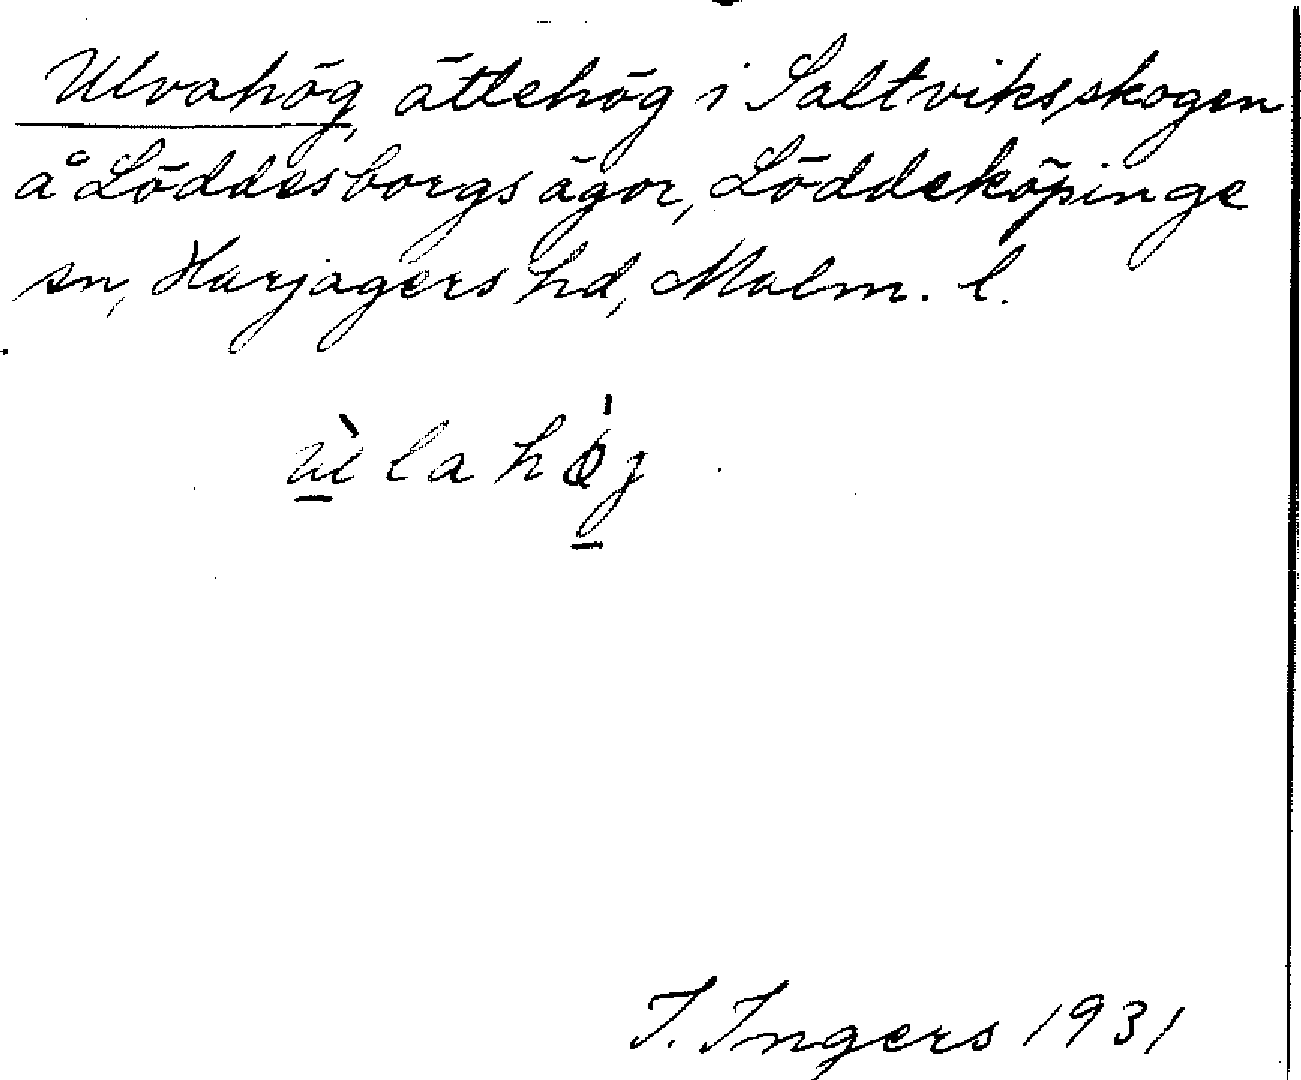 Ulvahög, ättehög i Saltviksskogen
å Löddesborgs ägor, Löddeköpinge
sn, Harjagers hd, Malm. l.
ùlahǿj
I. Ingers 1931